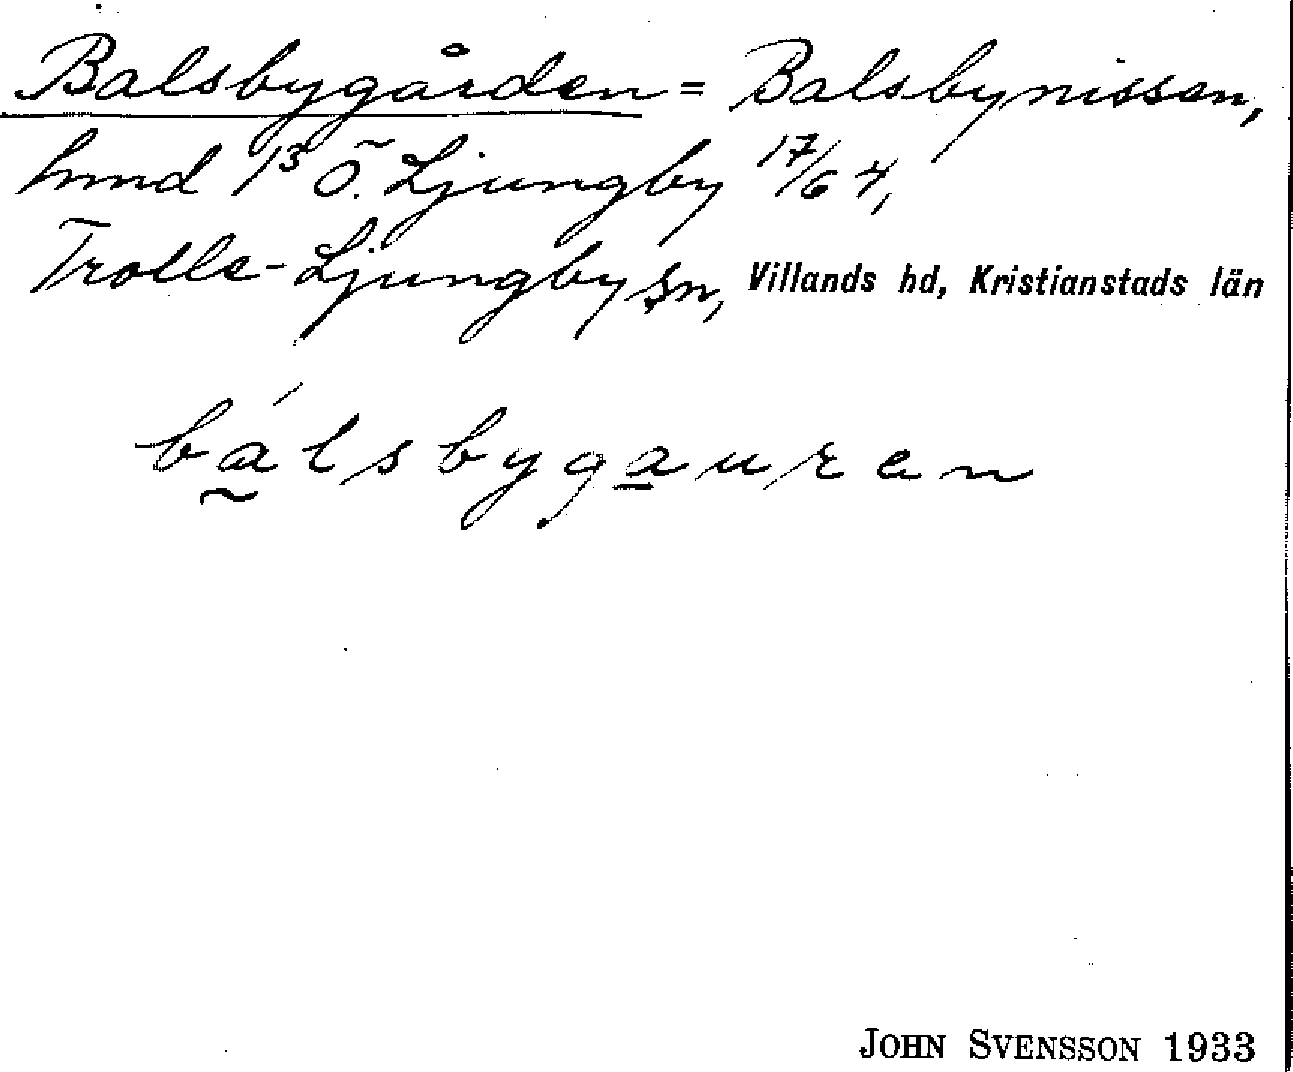 Balsbygården = Balsbynissen,
hmd 1³ Ö. Ljungby 17/64,
Trolle-Ljungby sn, Villands hd, Kristianstads län
bálsbygauren
JOHN SVENSSON 1933